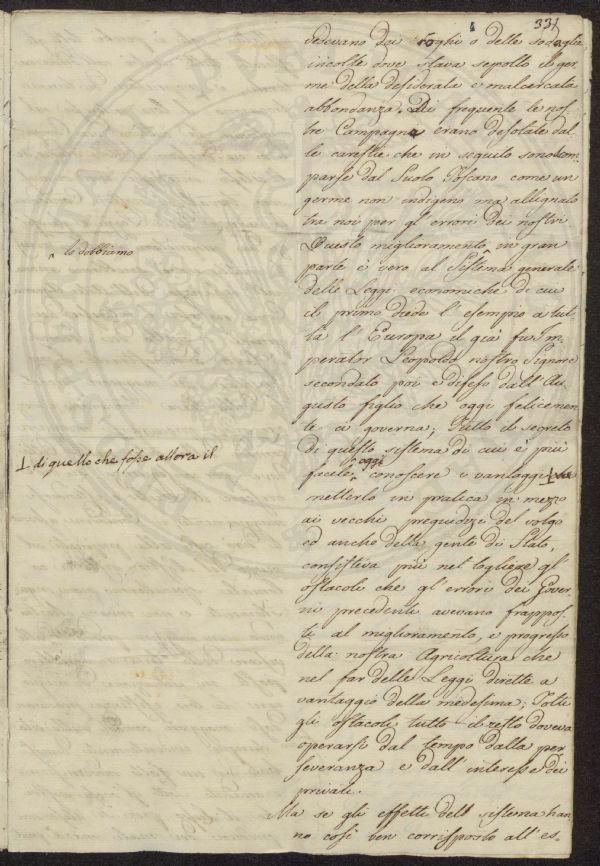 4
331
vedevano dai roghi o delle sodaglie
incolte dove stava sepolto il ger
me della desiderata e malcercata
abbondanza. Di frequente le nos
tre Campagne erano desolate dal
le carestie che in seguito sono com
parse dal Suolo Toscano come un
germe non indigeno ma allignato
tra noi per gl'errori dei nostri
Questo miglioramento ^ in gran
^ lo dobbiamo
parte è vero al Sistema generale
delle Leggi economiche di cui
il primo diede l'esempio a tut
ta l'Europa il già fu Im
perator Leopoldo nostro Signore
secondato poi e difeso dall'Au
gusto figlio che oggi felicemen
te ci governa; Tutto il segreto
di questo sistema di cui è più
facile ^ oggi conoscere i vantaggi
⊥ di quello che fosse allora il
metterlo in pratica in mezzo
ai vecchi pregiudizi del volgo
ed anche della gente di Stato,
consisteva più nel togliere gl'
ostacoli che gl'errori dei Gover
ni precedenti avevano frappos
ti al miglioramento, e progresso
della nostra Agricoltura che
nel far delle Leggi dirette a
vantaggio della medesima; Tolti
gli ostacoli tutto il resto doveva
operarsi dal tempo dalla per
severanza e dall'interesse dei
privati.
Ma se gli effetti dell sistema han
no così ben corrisposto all'es-